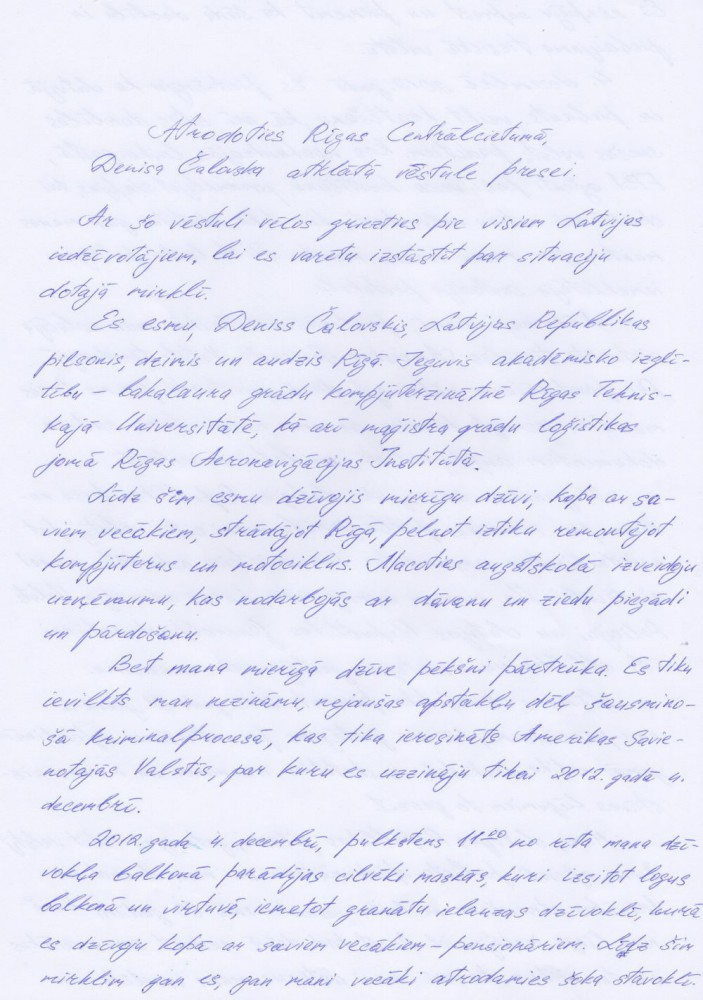 Atrodoties Rīgas Centrālcietumā,
Denisa Čalovska atklāta vēstule presei.
Ar šo vēstuli vēlos griezties pie visiem Latvijas
iedzīvotājiem, lai es varētu izstāstīt par situāciju
dotajā mirklī.
Es esmu, Deniss Čalovskis, Latvijas Republikas
pilsonis, dzimis un audzis Rīgā. Ieguvis akadēmisko izglī-
tību – bakalaura grādu kompjūterzinātnē Rīgas Tehnis-
kajā Universitātē, kā arī maģistra grādu loģistikas
jomā Rīgas Aeronavigācijas Institūtā.
Līdz šim esmu dzīvojis mierīgu dzīvi, kopa ar sa-
viem vecākiem, strādājot Rīgā, pelnot iztiku remontējot
kompjūterus un motociklus. Macoties augstskolā izveidoju
uzņēmumu, kas nodarbojās ar dāvanu un ziedu piegādi
un pārdošanu.
Bet mana mierīgā dzīve pēkšņi pārtrūka. Es tiku
ievilkts man nezināmu, nejaušas apstākļu dēļ šausmino-
šā kriminalprocesā, kas tika ierosināts Amerikas Savie-
notajās Valstīs, par kuru es uzzināju tikai 2012. gadā 4.
decembrī.
2012. gada 4. decembrī, pulkstens 11⁰⁰ no rīta mana dzī-
vokļa balkonā parādījās cilvēki maskās, kuri izsitot logus
balkonā un virtuvē, iemetot granātu ielauzas dzīvoklī, kurā
es dzīvoju kopā ar saviem vecākiem – pensionāriem. Līdz šim
mirklim gan es, gan mani vecāki atrodamies šoka stāvoklī.